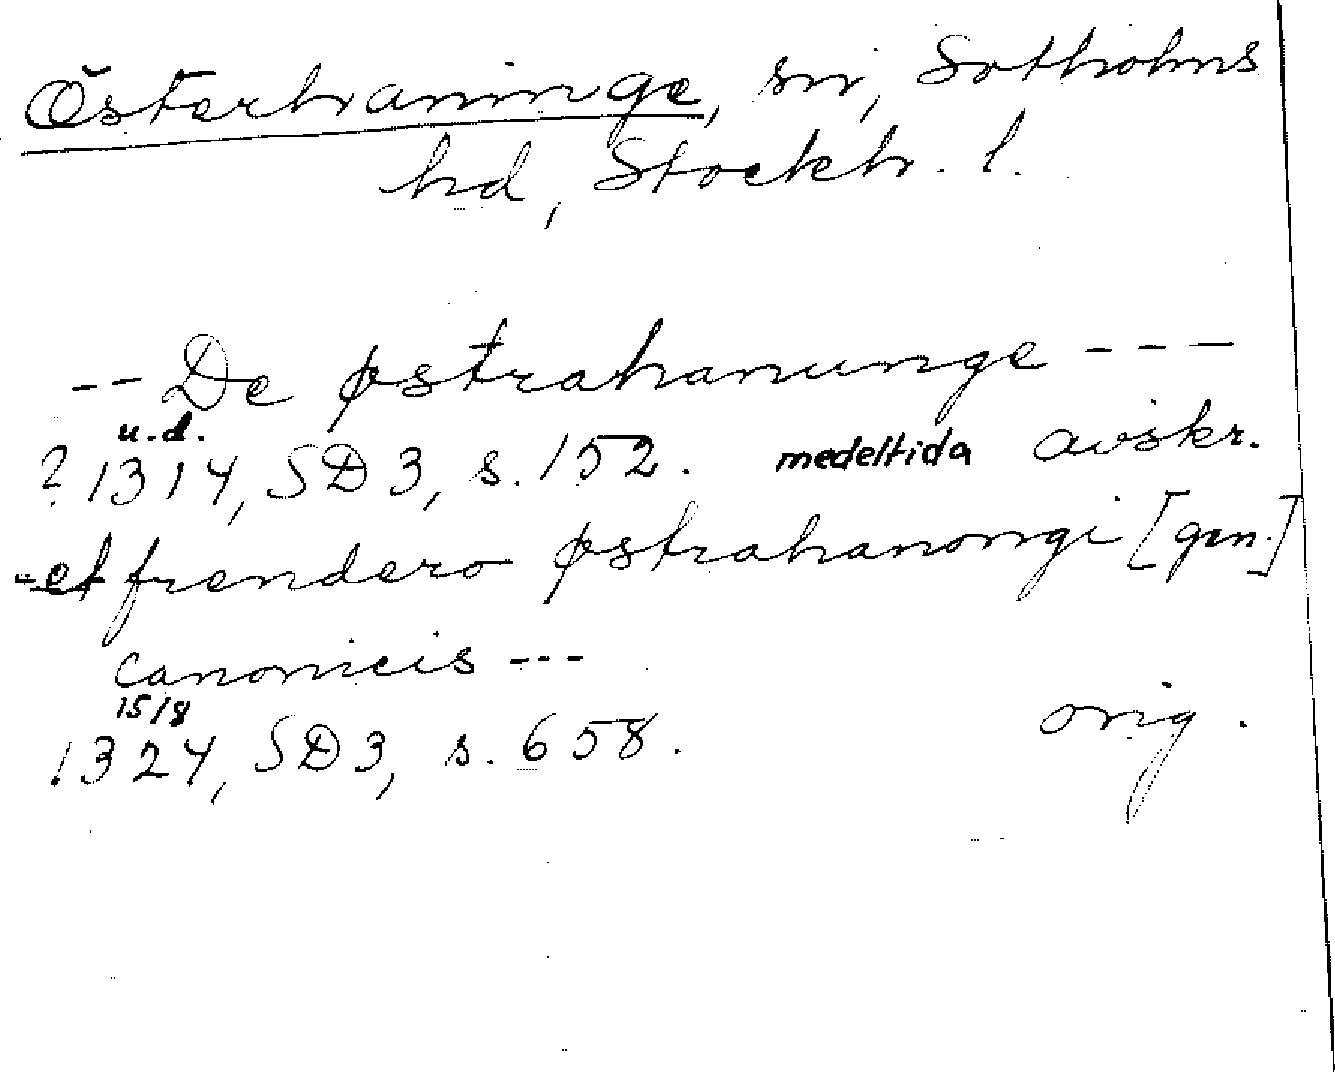 Österhaninge, sn, Sotholms
hd, Stockh. l.
-- De østrahanunge ---
u.d.
? 1314, SD 3, s. 152. medeltida avskr.
- et frendero østrahanongi [gen.]
canonicis ---
15/8
1324, SD 3, s. 658. orig.